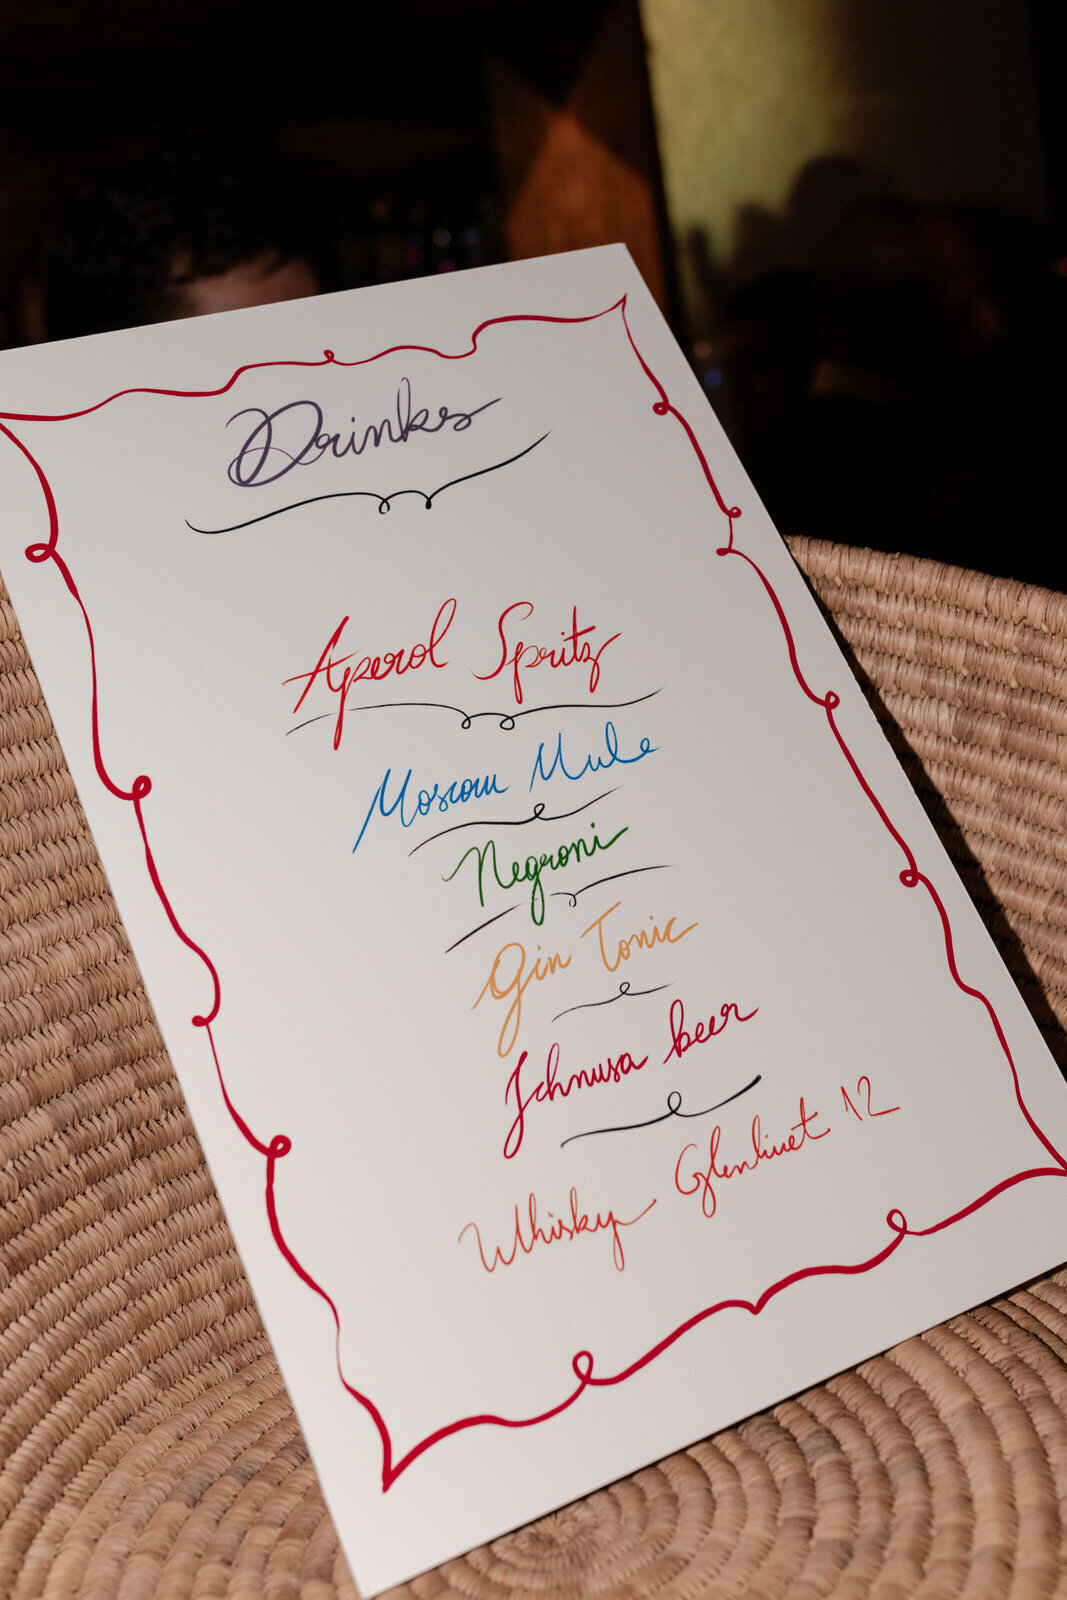 Drinks
Aperol Spritz
Moscow Mule
Negroni
Gin Tonic
Ichnusa beer
Whisky Glenlivet 12